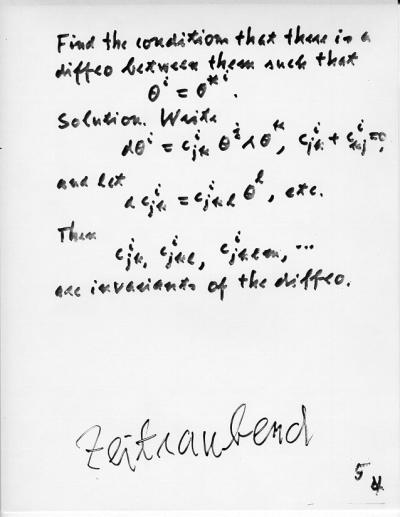 Find the condition that there is a
diffeo between them such that
θ^i = θ^{*i}.
Solution. Write
dθ^i = c^i_{jk} θ^j ∧ θ^k, c^i_{jk} + c^i_{kj} = 0,
and let
d c^i_{jk} = c^i_{jkl} θ^l, etc.
Then
c^i_{jk}, c^i_{jkl}, c^i_{jklm}, ...
are invariants of the diffeo.
Zeitraubend
5
4